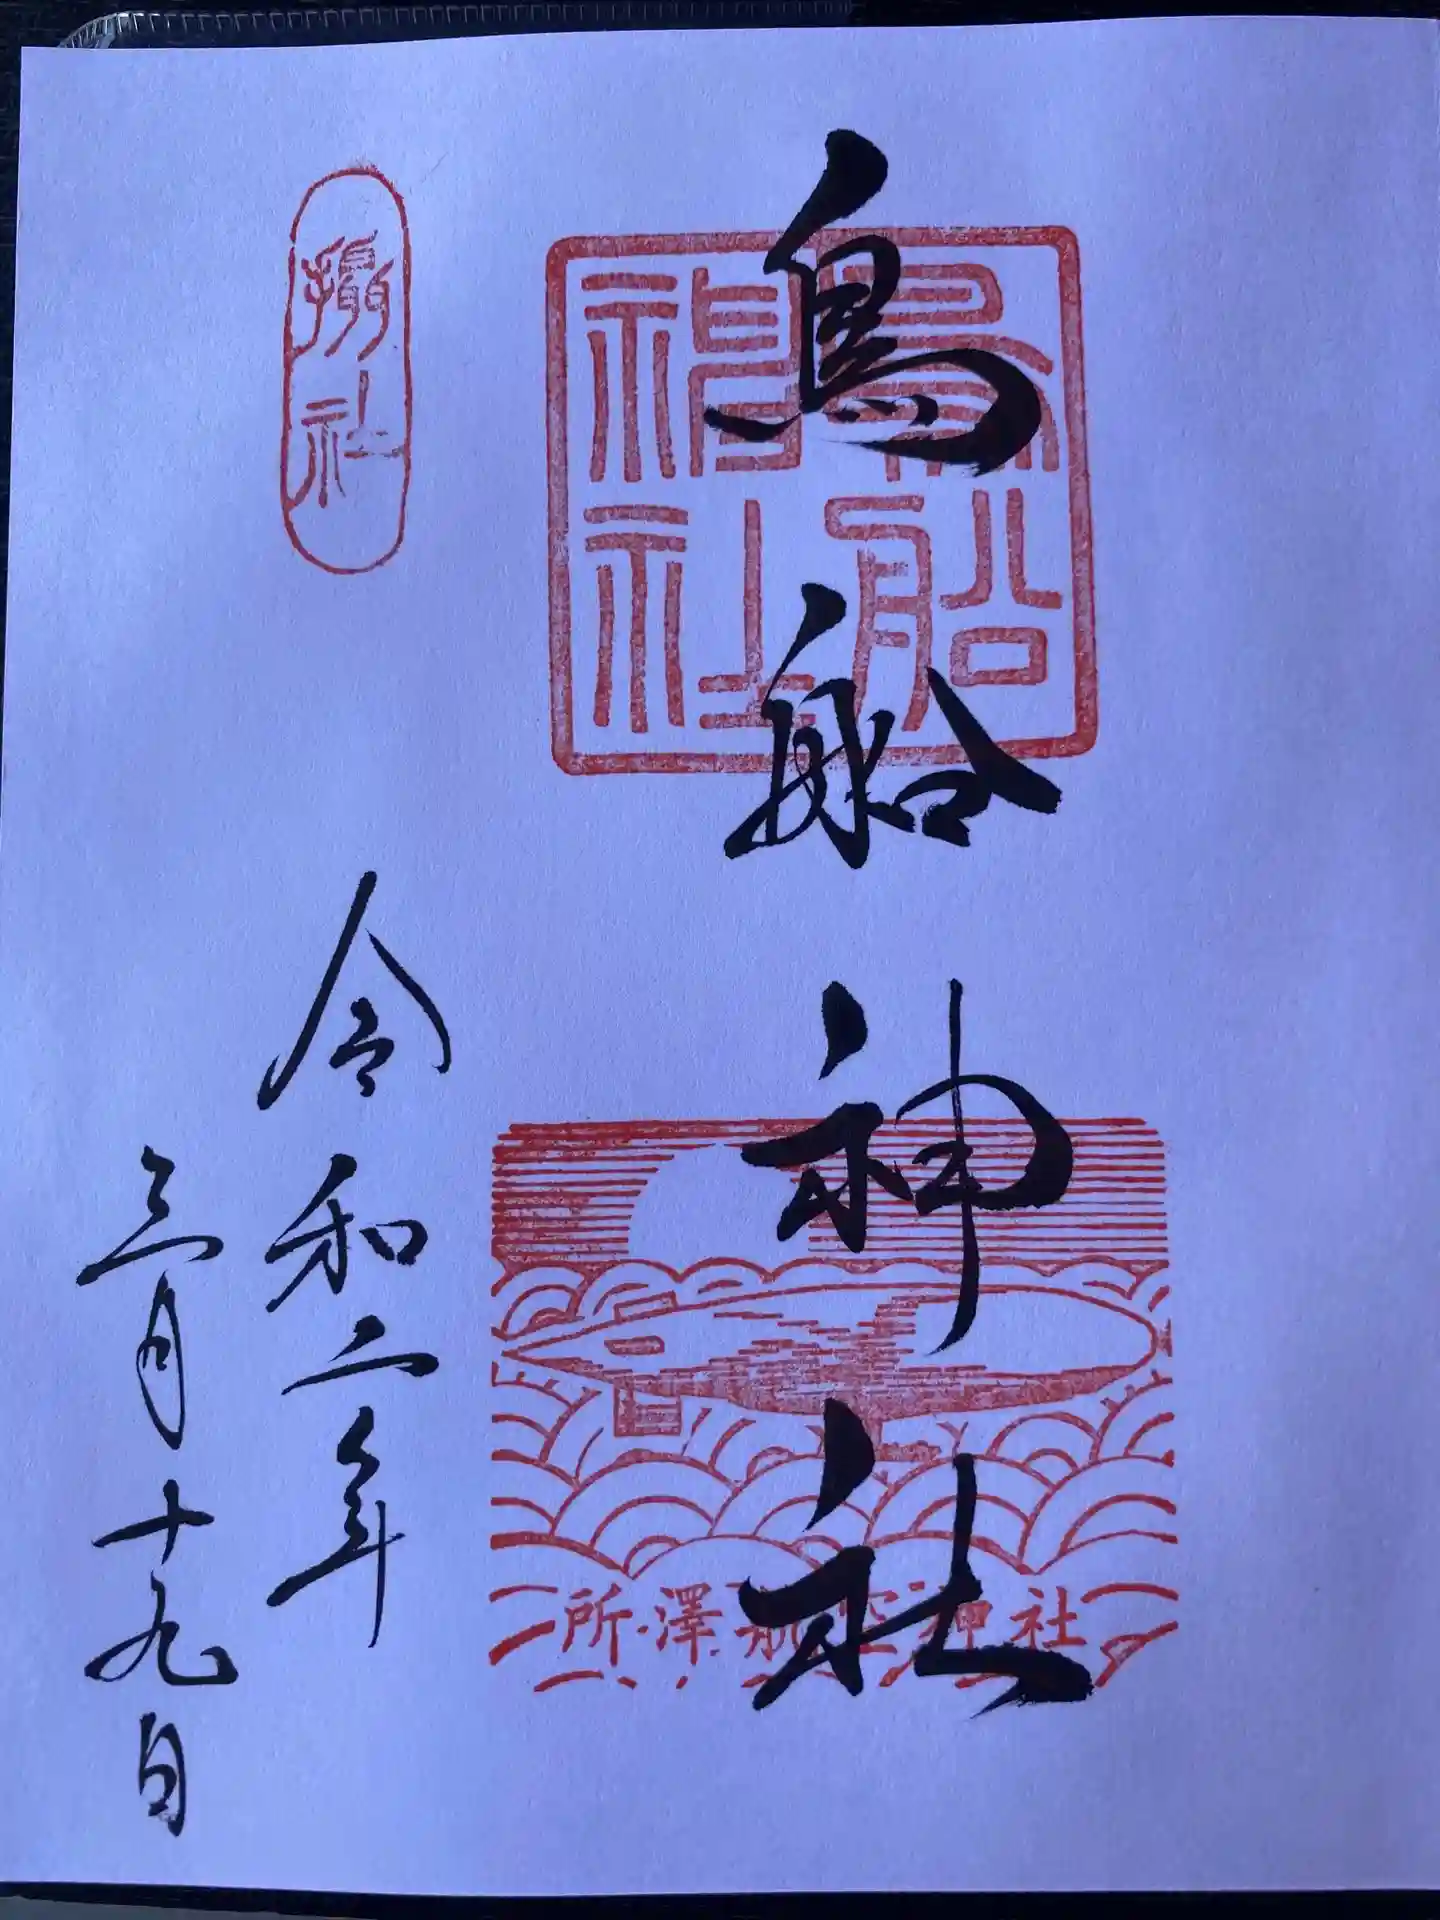 鳥船神社
鳥船神社
所澤航空神社
摂社
令和二年
三月十九日